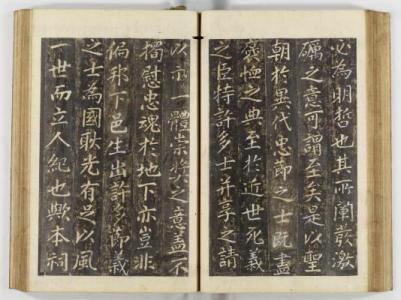 必為明哲也其所闡發激
礪之意可謂至矣是以聖
朝於異代忠節之士既盡
褒恤之典至於近世死義
之臣特許多士并享之請
以示一體崇奬之意盖不
獨慰忠魂於地下亦豈非
偏邦下邑生出許多節義
之士為國耿光有足以風
一世而立人紀也歟本祠